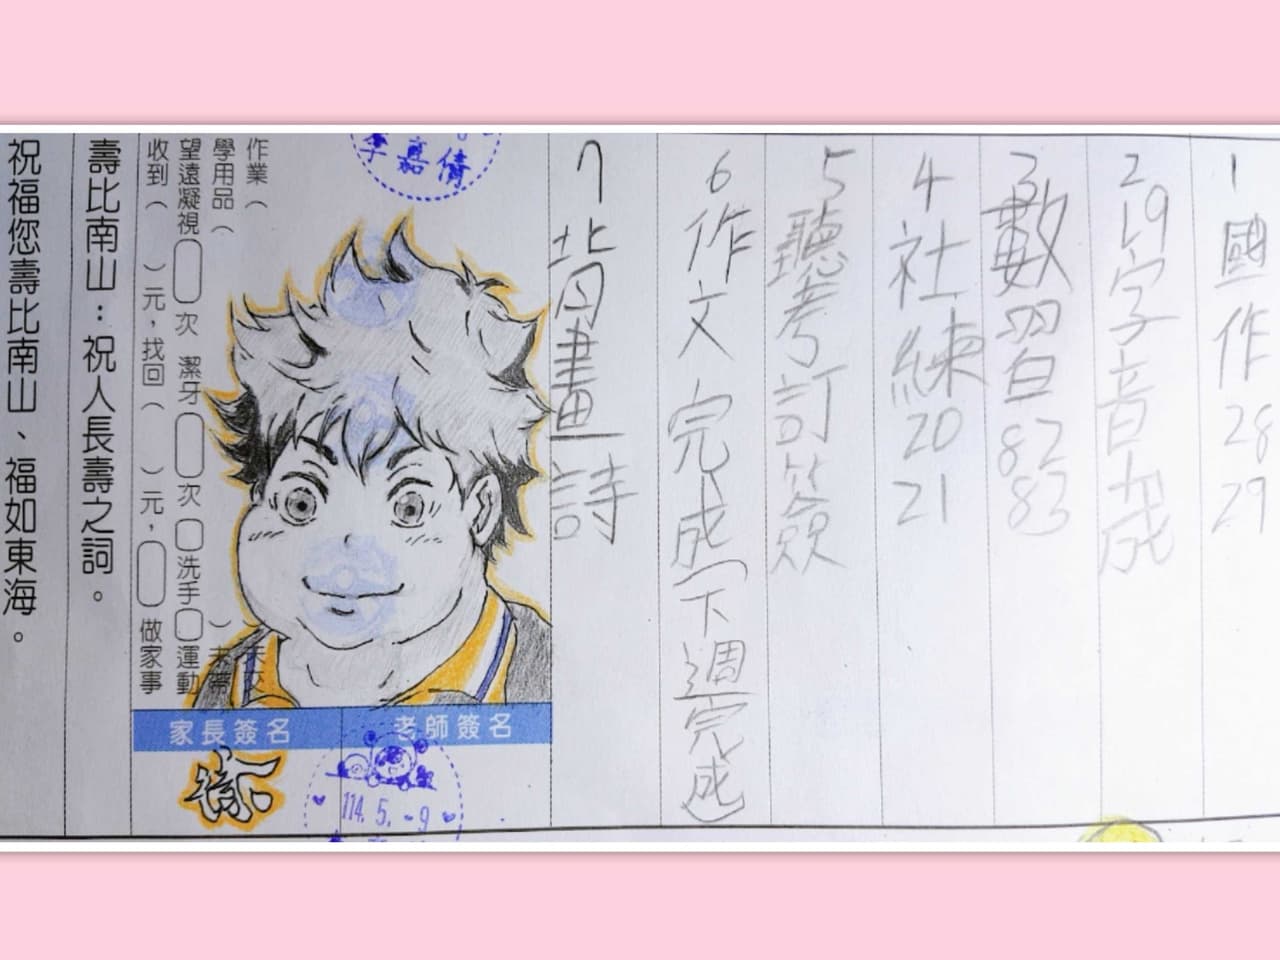 1 國作 28 29
2 L9字音成
3 數習 82 83
4 社練 20 21
5 聽考訂簽
6 作文完成(下週完成
7 背畫詩
李嘉倩
作業( )未交
學用品( )未帶
望遠凝視 次 潔牙 次 洗手 運動
收到( )元,找回( )元, 做家事
家長簽名
老師簽名
114. 5. -9
壽比南山:祝人長壽之詞。
祝福您壽比南山、福如東海。